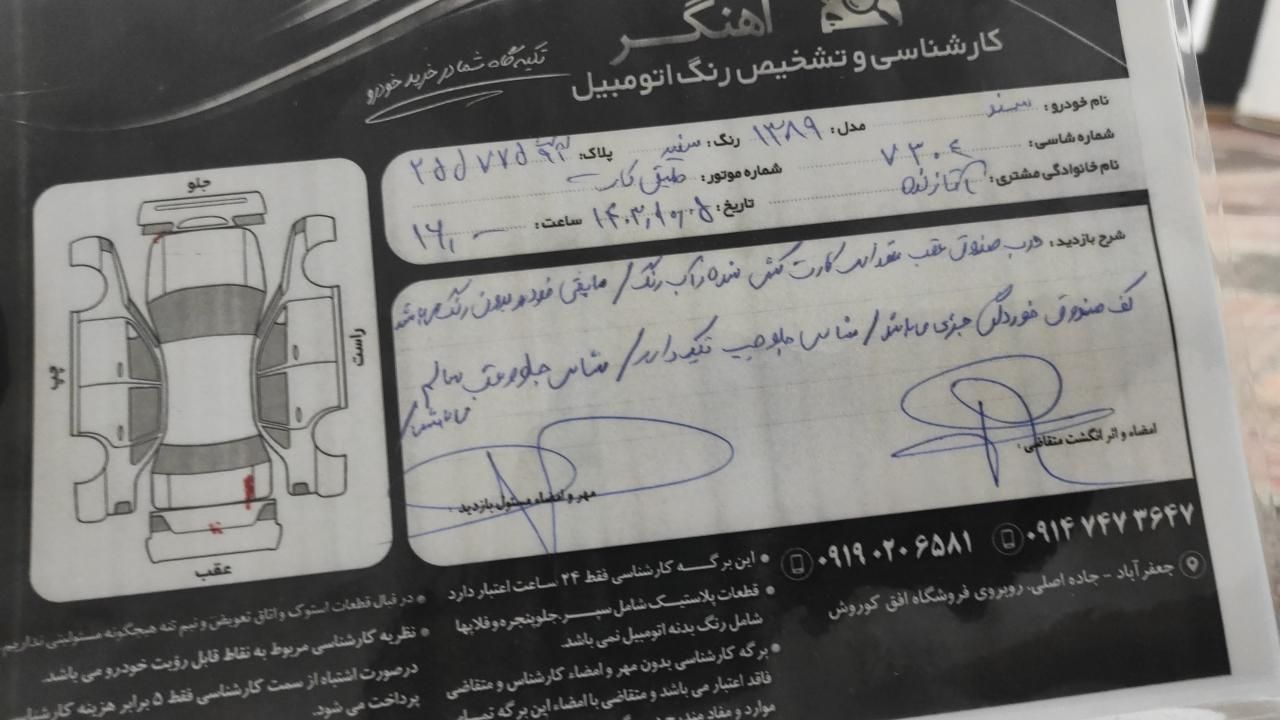 آهنگر
کارشناسی و تشخیص رنگ اتومبیل
تکیه گاه شما در خرید خودرو
نام خودرو: سمند مدل: ۱۳۸۹ رنگ: سفید پلاک:
شماره شاسی: ۷۳۰۴ شماره موتور: طبق کارت
نام خانوادگی مشتری: تاریخ: ساعت: ۱۶,
جلو
راست
چپ
عقب
شرح بازدید: درب صندوق عقب کارت کشی شده رنگ / مابقی خودرو بدون رنگ
کف صندوق خوردگی جزئی / شاسی جلو چپ دارد / شاسی جلو و عقب سالم
میباشد/
امضاء و اثر انگشت متقاضی:
مهر و امضاء مسئول بازدید:
۰۹۱۹ ۰۲۰ ۶۵۸۱ ۰۹۱۴ ۷۴۷ ۳۶۴۷
جعفرآباد - جاده اصلی، روبروی فروشگاه افق کوروش
• این برگه کارشناسی فقط ۲۴ ساعت اعتبار دارد
• قطعات پلاستیک شامل سپر، جلوپنجره و قلابها
شامل رنگ بدنه اتومبیل نمی باشد.
• برگه کارشناسی بدون مهر و امضاء کارشناس و متقاضی
فاقد اعتبار می باشد و متقاضی با امضاء این برگه تمام
موارد و مفاد مندرج
• در قبال قطعات استوک و اتاق تعویض و نیم تنه هیچگونه مسئولیتی نداریم.
• نظریه کارشناسی مربوط به نقاط قابل رؤیت خودرو می باشد.
درصورت اشتباه از سمت کارشناسی فقط ۵ برابر هزینه کارشناسی
پرداخت می شود.